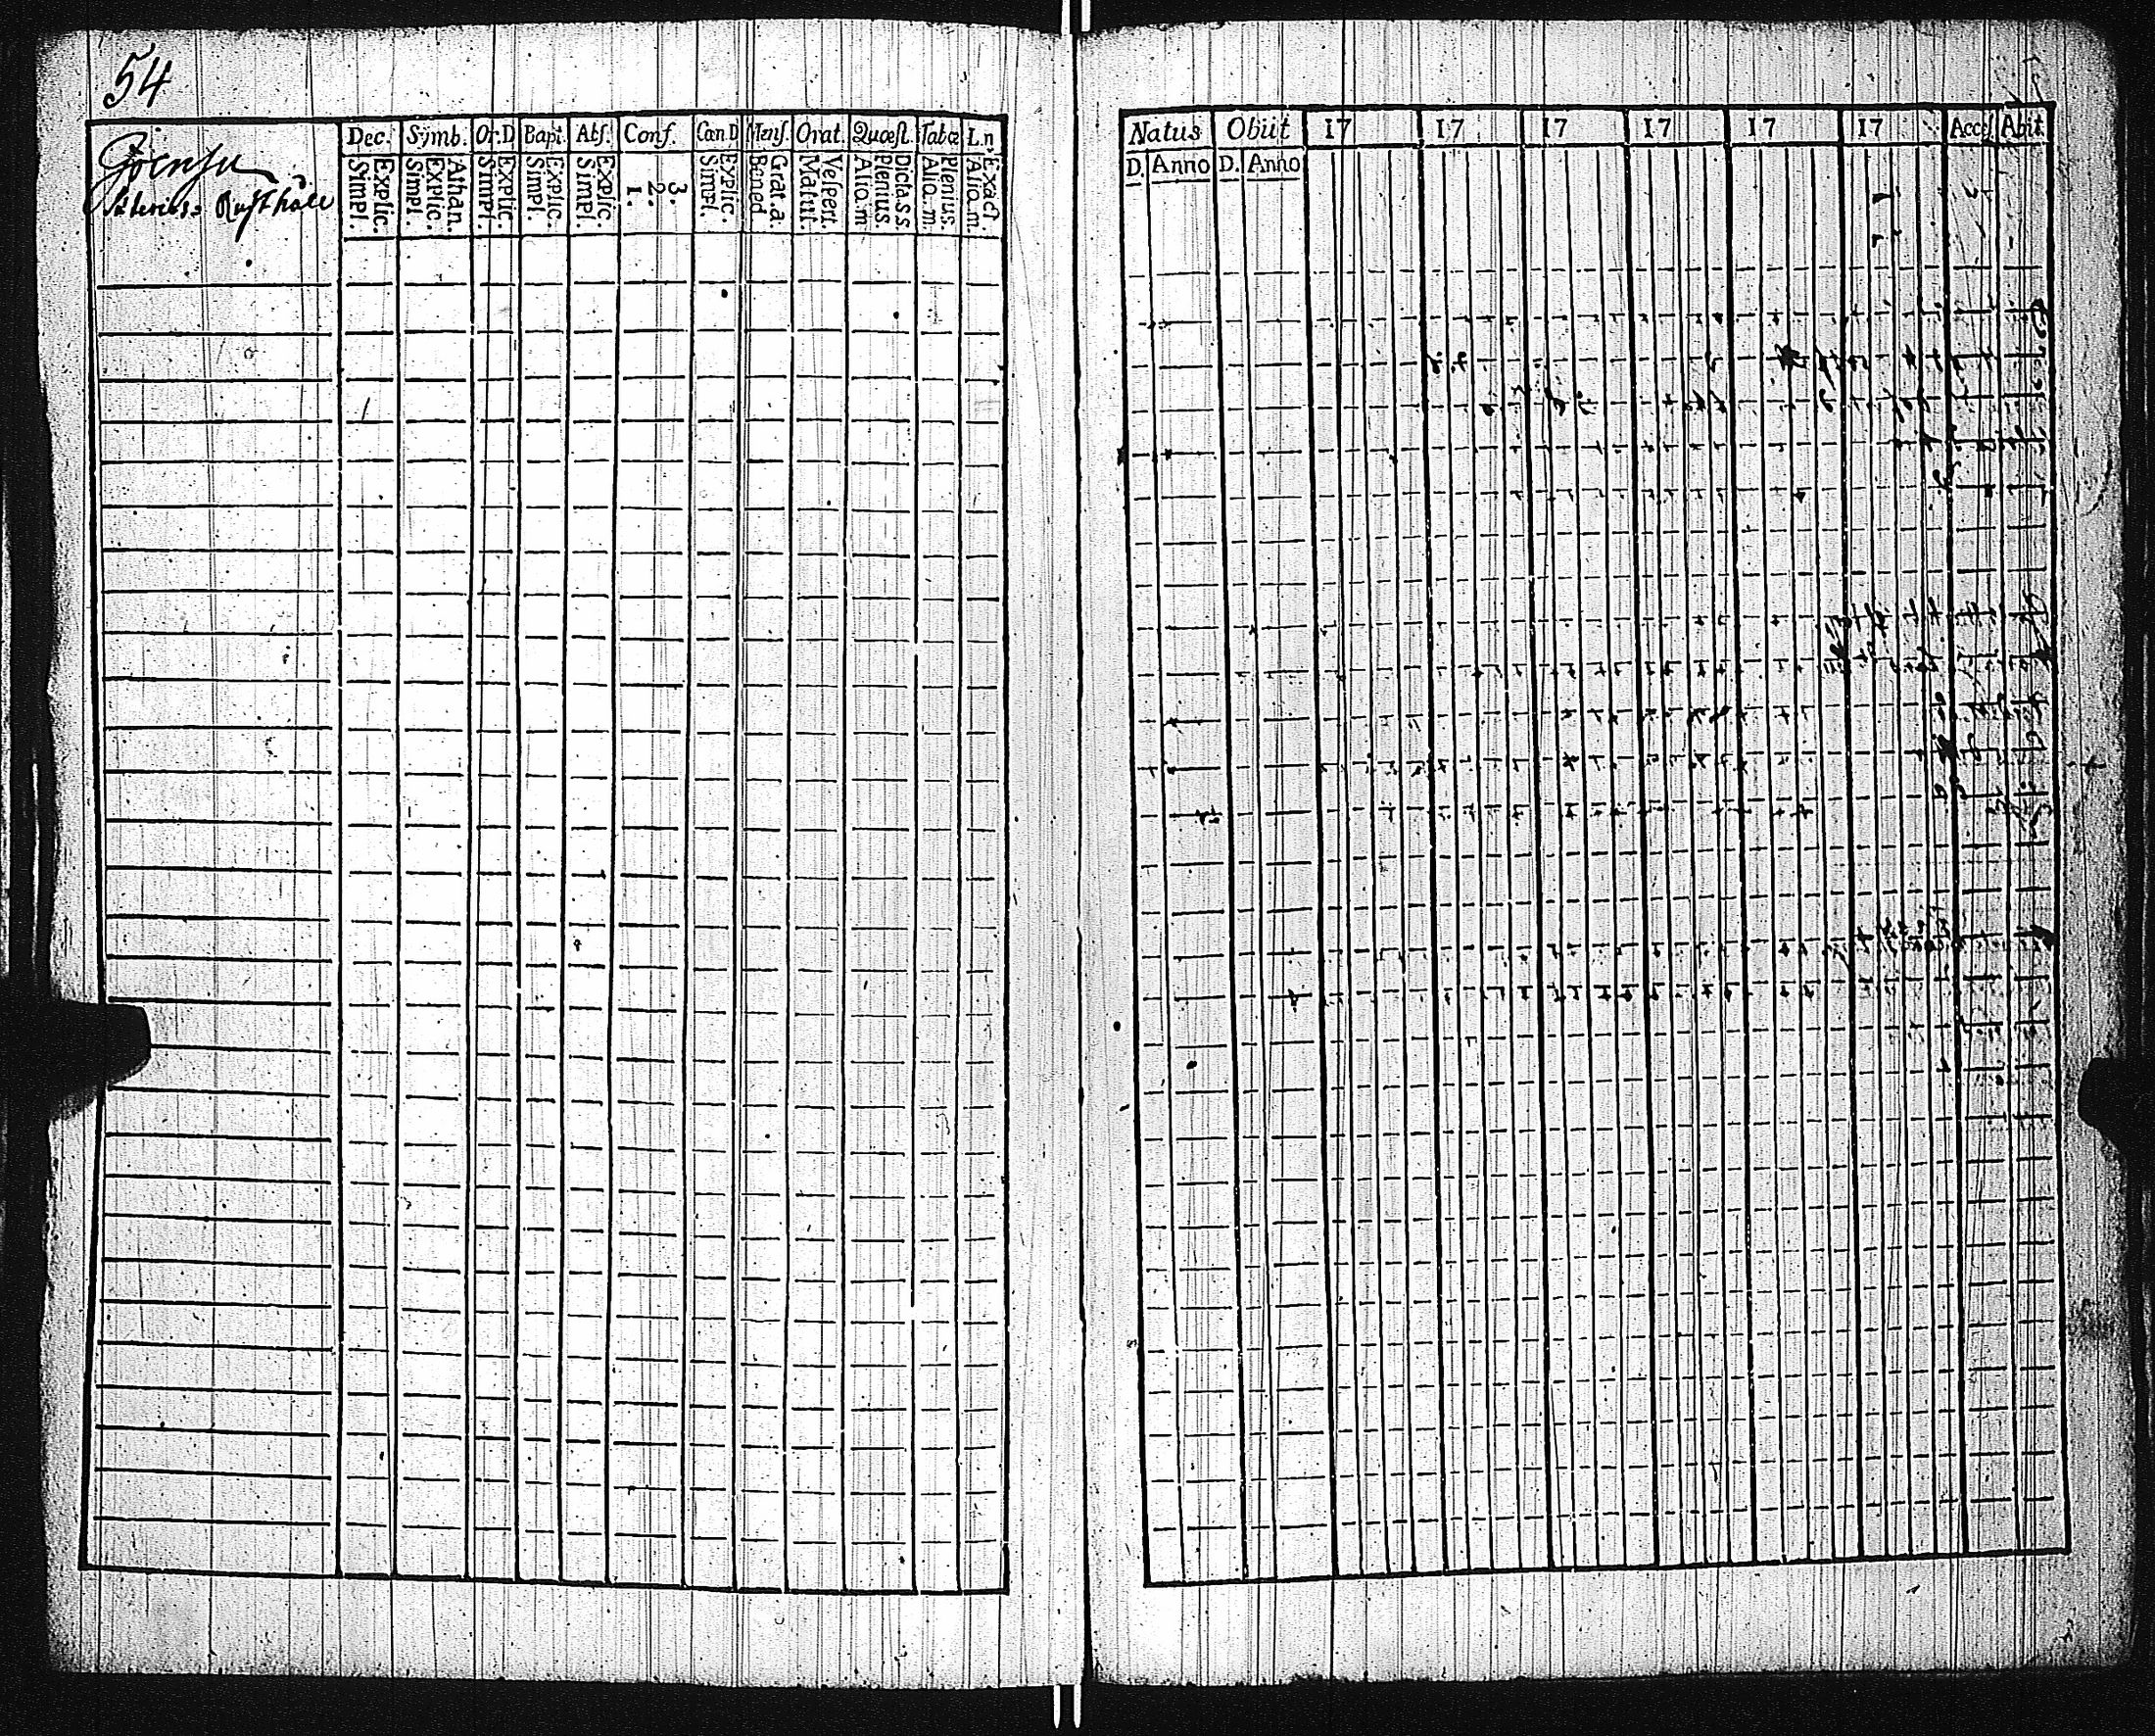 54
Dec. Symb. Or.D Bapt. Abſ. Conf. Cœn.D Menſ. Orat. Quæſt. Tabœ L.n.
Explic. Simpl. Athan. Explic. Simpl. Explic. Simpl. Explic. Simpl. Explic. Simpl. 3. 2. 1. Explic. Simpl. Grat.a. Bened. Veſpert. Matut. Dicta.s.s. Plenius. Alio.m. Plenius. Alio.m. Exact. Alio.m.
Ruſthåll
Natus Obiit 17 17 17 17 17 17 Acceſ. Abit.
D. Anno D. Anno